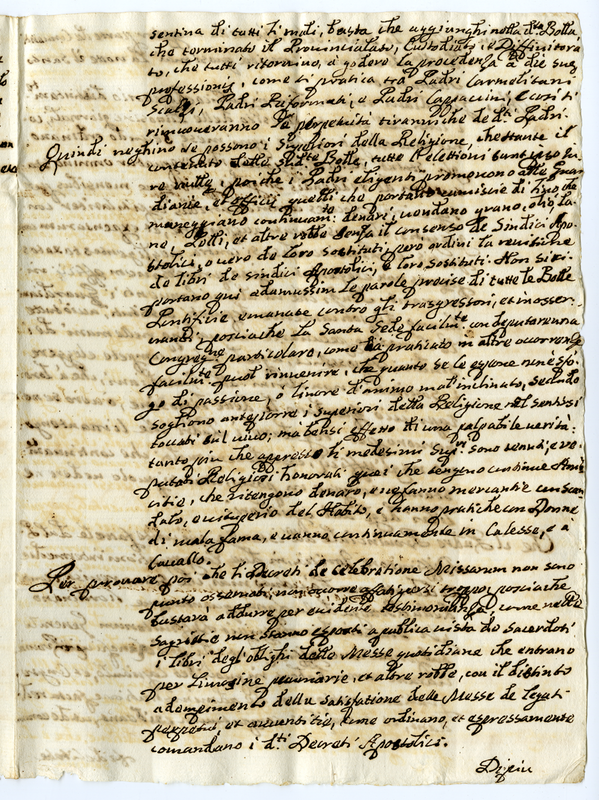 sentina di tutti li mali, basta che aggiunghi nella d.ta Bolla
che terminato il Provincialato, Custodiato, et Diffinitora
to, che tutti ritornino, à godere la procedenza à die suę
professionis, come si pratica trà Padri Carmelitani
Scalzi, Padri Riformati, e Padri Capuccini, e così ti
rimuoveranno le perpetuità tiranniche de d.ti Padri.
Quindi neghino se possono i Superiori della Religione, che stante il
contenuto delle Bolle, tutte l'elettioni sunt ipso Ju
re nullę, poiche i Padri eligenti promovono alle guar
diania, et officij quelli che portano camiscie di lino, che
maneggiano continuam.te denari, vendano grano, oglio, la
ne, et altre robbe senza il consenso de Sindici Apo
stolici, overo de loro sostituti, però ordini la revisione
de libri de sindici Apostolici, e loro sostituti. Non si ri
portano quì adamussim le parole precise di tutte le Bolle
Pontificie emanate contro gli trasgressori, et inosser
vandi, posciache la Santa Sede facilm.te con deputare una
Congreg.ne particolare, come hà praticato in altre occorrenze
facilm.te può rinvenire, che quanto se le espone non è sfo
go di passione, o livore d'animo mal'inclinato, secondo
sogliono anteporre i superiori della Religione nel sentirsi
toccati sul vivo; ma bensì effetto di una palpabile verità:
tanto più che appresso li medesimi Sup.ri sono tenuti, e re
putati Religiosi honorati quei che tengono continue Ami
citie, che ritengono denaro, e ne fanno mercantie con scan
dalo, e vituperio del Habito, e hanno pratiche con Donne
di mala fama, e vanno continuamente in Calesse, e à
Cavallo.
Per provare poi che li Decreti de celebratione Missarum non sono
punto osservati, non occorre affatigarsi troppo, posciache
bastarà addurre per evidente testimonianza, come nelle
Sagristie non stanno esposti a publica vista de Sacerdoti
i libri degl'oblighi delle Messe quotidiane che entrano
per limosine pecuniarie, et altre robbe, con il distinto
adempimento della satisfatione delle Messe de legati
perpetui, et aventitie, come ordinano, et espressamente
comandano i d.ti Decreti Apostolici.